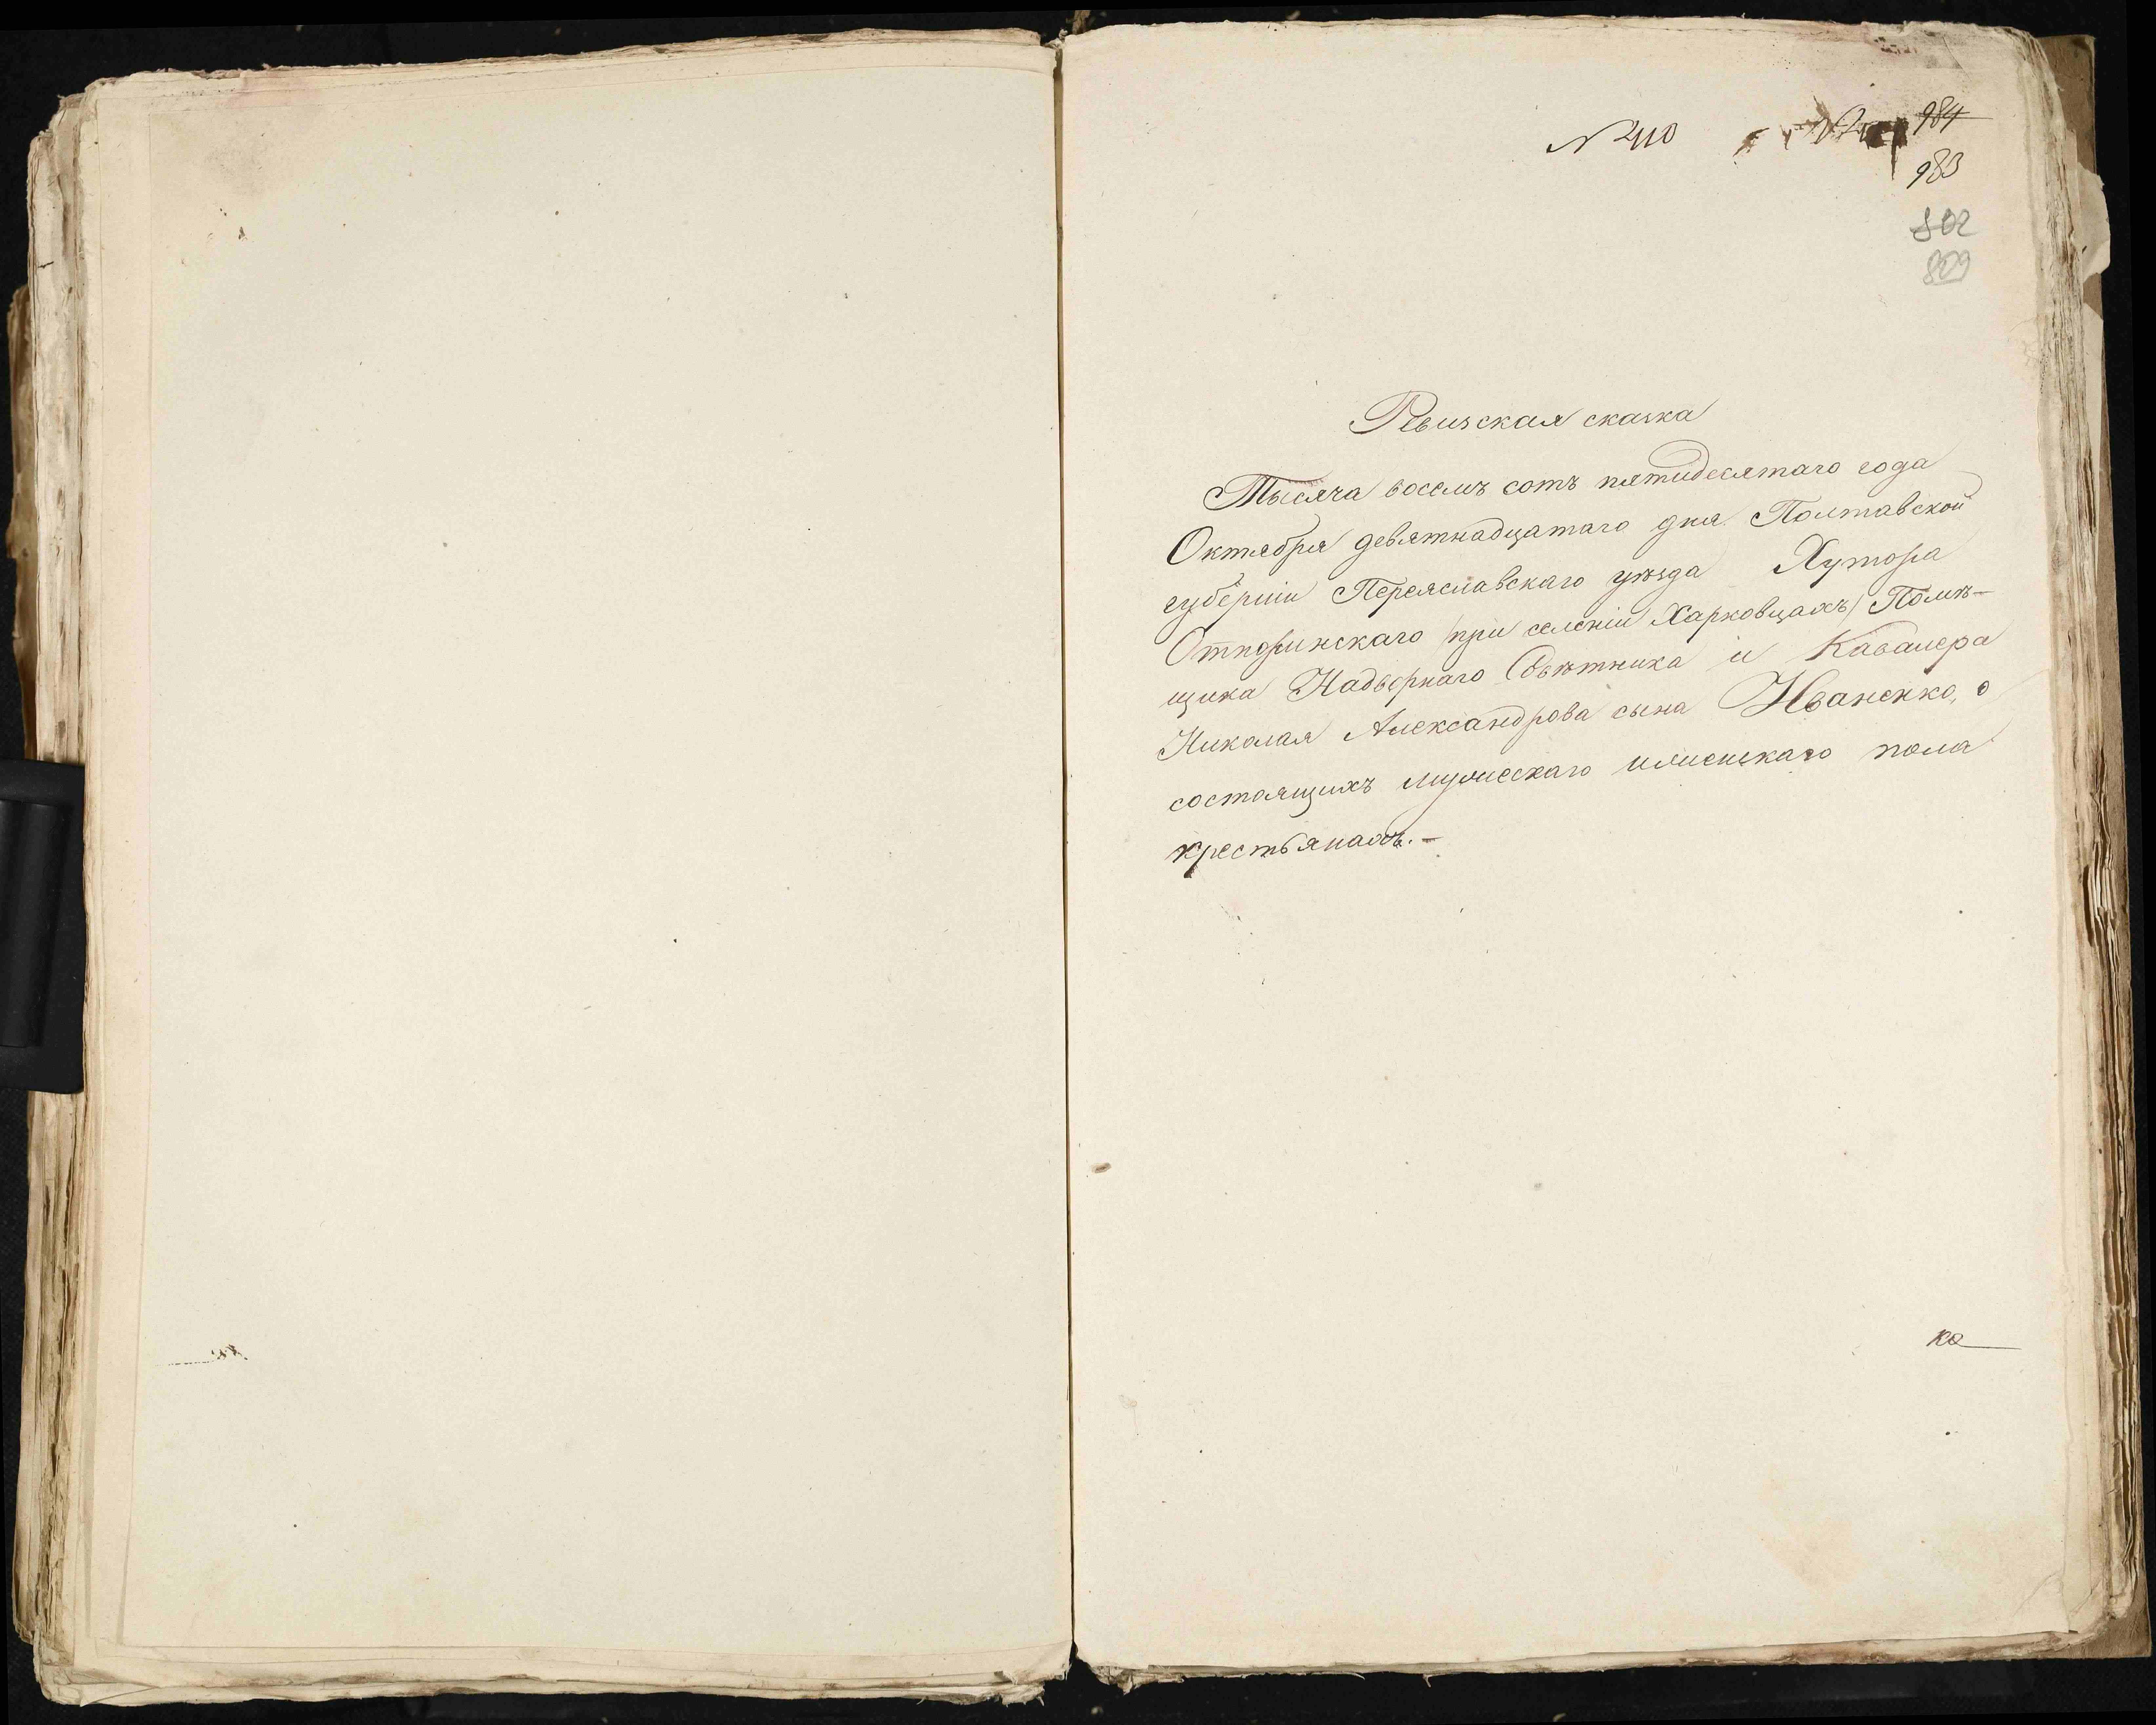 N 240
984
983
802
809
Ревизская сказка
Тысяча восемъ сотъ пятидесятаго года
Октября девятнадцатаго дня Полтавской
губерніи Переяславскаго уѣзда Хутора
при селеніи Харковцахъ/ Помѣ-
щика Надворнаго Совѣтника и Кавалера
Николая Александрова сына Иваненко, о
состоящихъ мужескаго и женскаго пола
крестьянахъ.-
ко